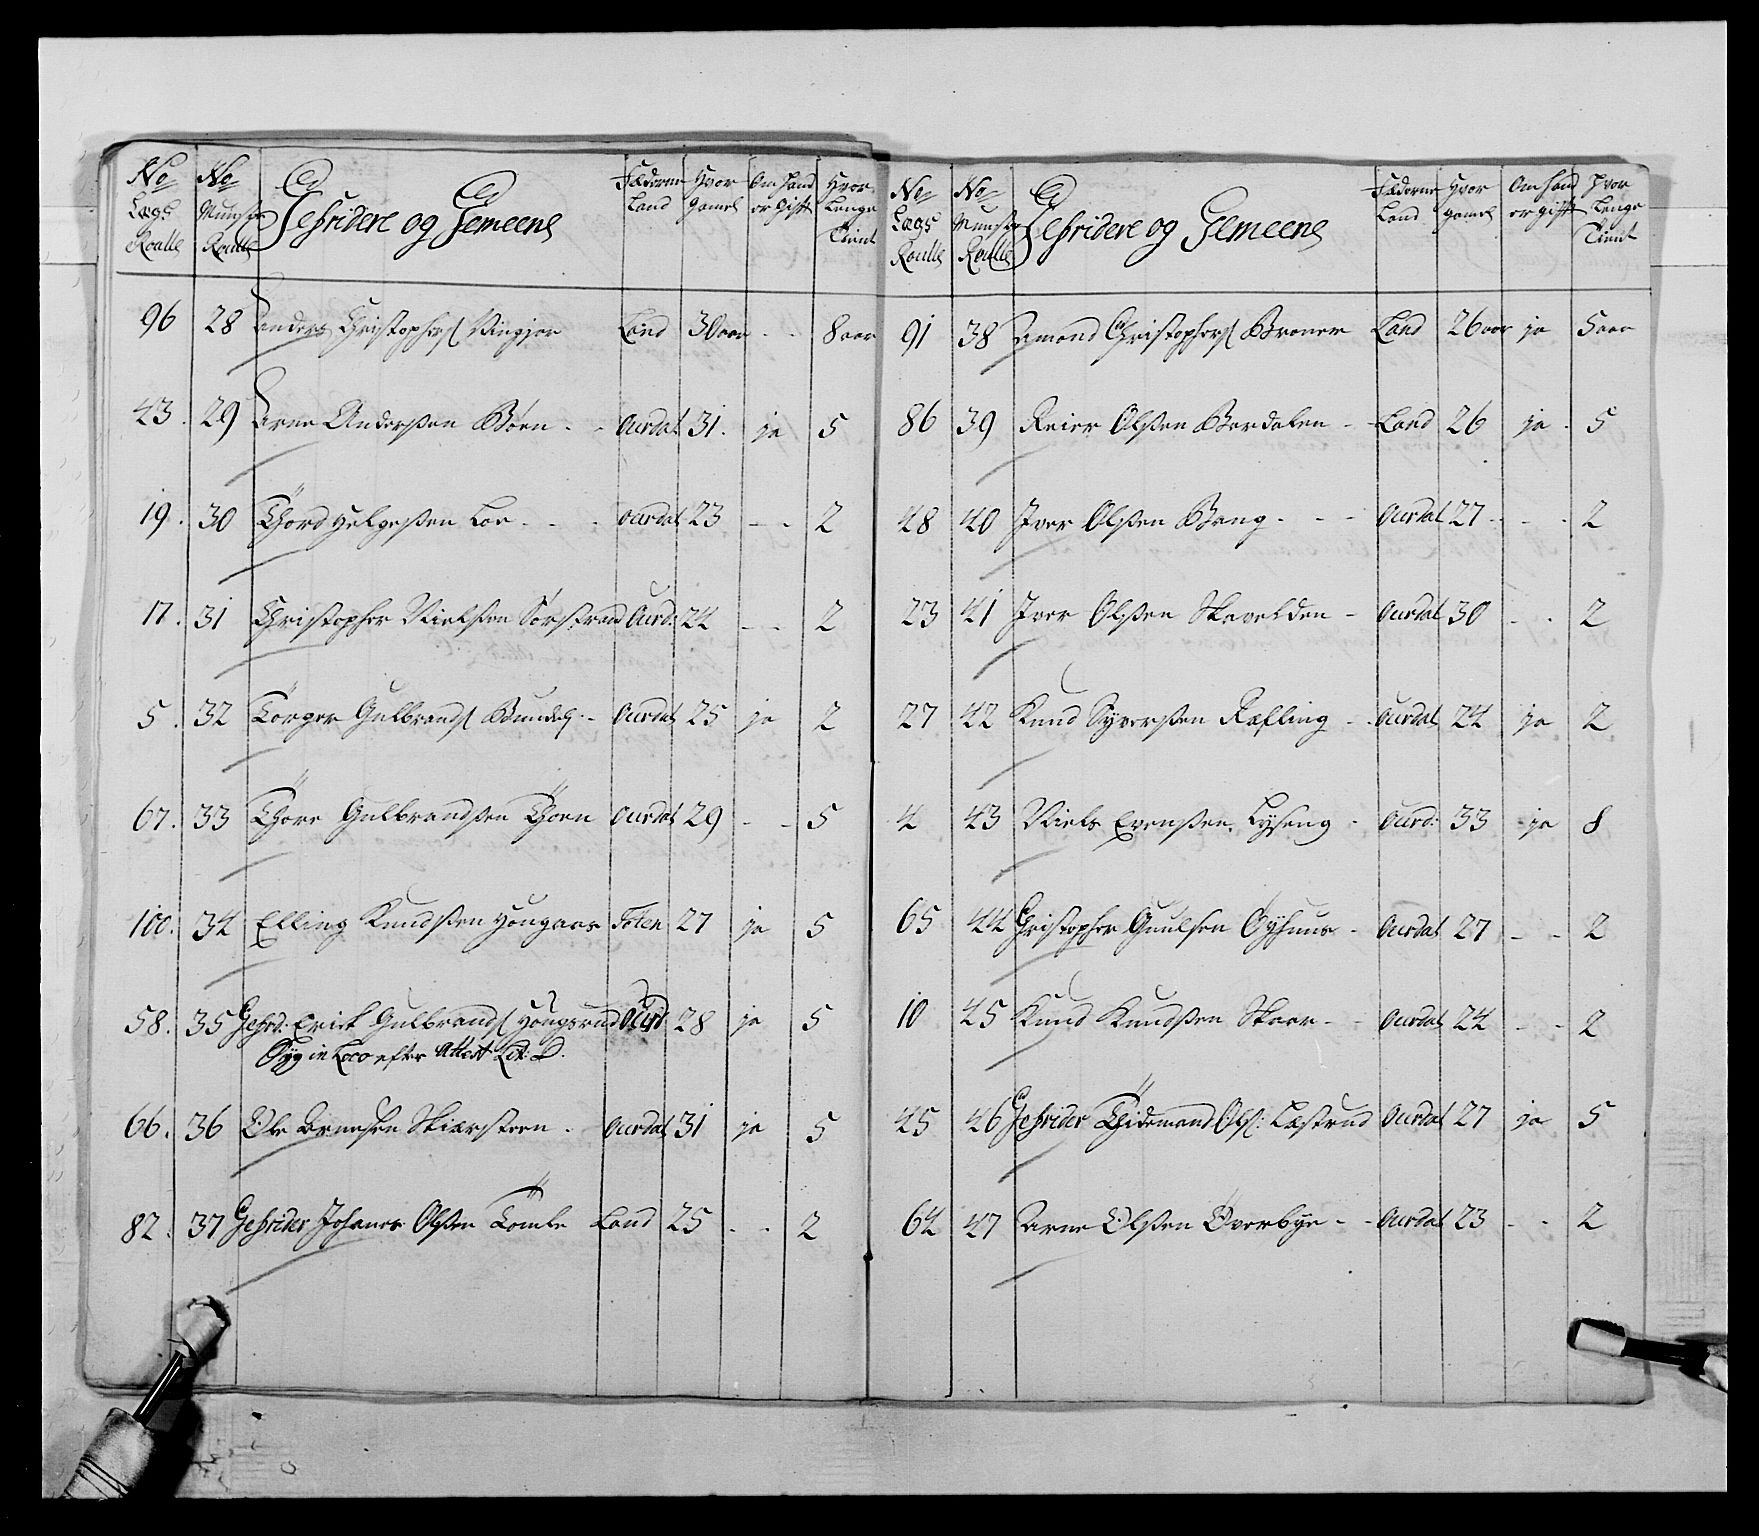 No Lægs Roulle | No Munster Roulle | Gefridere og Gemeene | Fæderne Land | Hvor Gamel | Om hand er Gift | Hvor Lenge Tient
96 28 Anders Christophers Land 30 aar - - 8 aar
43. 29 Arne Anderssen Bøen - - Ourdal 31. ja 5
19. 30 Thord Helgessen Loe - - - Ourdal 23 - - 2
17. 31 Christopher Nielssen Sørstrand Ourd: 24 - - 2
5. 32 Torger Gulbrands - Ourdal 25 ja 2
67. 33 Thore Gulbrandssen Thoen Ourdal 29 - - 5
100. 34 Elling Knudssen Hougaar Toten 27 ja 5
58. 35 Gefrd: Erick Gulbrands Hougsrud Ourd 28 ja 5
Syg in Loco efter Attest Lit: D.
66. 36 Ole Arnesen Skiærsteen - Ourdal 31 ja 5
82. 37 Gefrider Johanes Olssen Tomle Land 25 - - 2
No Lægs Roulle | No Munster Roulle | Gefridere og Gemeene | Fæderne Land | Hvor gamel | Om hand er gift | Hvor Lenge Tient
91 38 Amond Christophers Broner Land 26 aar ja 5 aar
86 39 Reier Olssen Berdalen - Land 26 ja - 5
48 40 Iver Olssen Bang - - - Ourdal 27 - - - 2
23 41 Iver Olssen Skavelden - Ourdal 30 - - 2
27 42 Knud Syverssen Ræfling - - Ourdal 24 ja 2
4 43 Niels Evenssen Lyseng - Ourd: 33 ja 8
65 44 Christopher Guulsen Øyhuus - Ourdal 27 - - 2
10 45 Knud Knudssen Skaar - - Ourdal 24 - - 2
45 46 Gefrider Thidemand Ols: Læstrud Ourdal 27 ja 5
64 47 Arne Olssen Øverbye - - Ourdal 23 - - 2